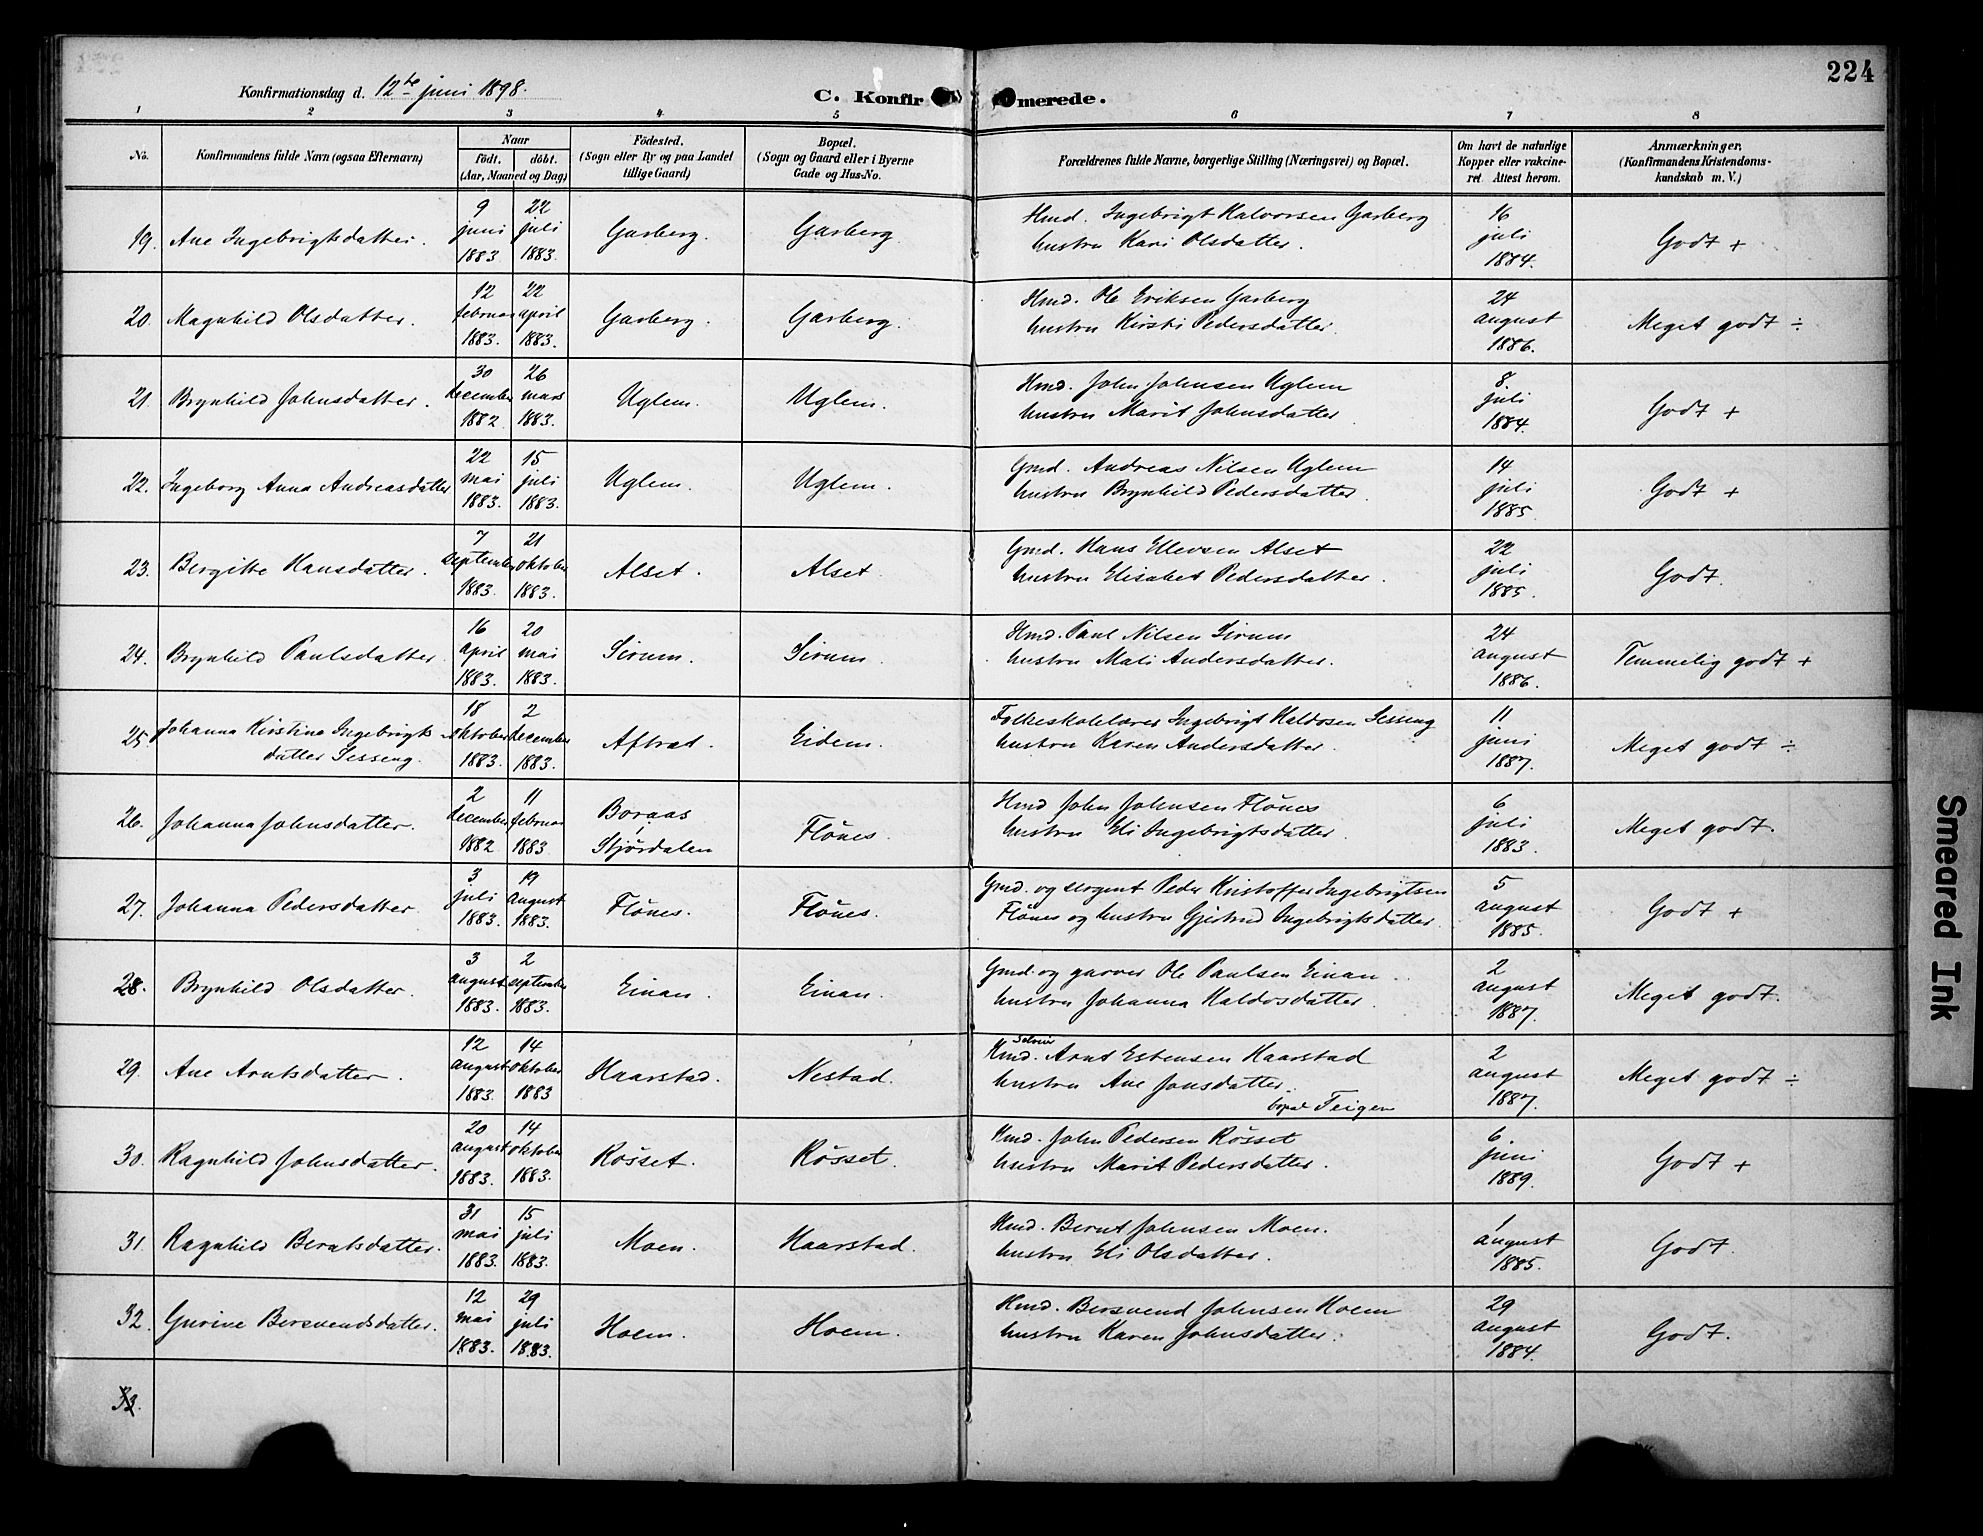 224
Konfirmationsdag d. 12te juni 1898.
C. Konfir merede.
1 2 3 4 5 6 7 8
No. Konfirmandens fulde Navn (ogsaa Efternavn) Naar födt. döbt. (Aar, Maaned og Dag) Födested. (Sogn eller By og paa Landet tillige Gaard) Bopæl. (Sogn og Gaard eller i Byerne Gade og Hus-No. Forældrenes fulde Navne, borgerlige Stilling (Næringsvei) og Bopæl. Om havt de naturlige Kopper eller vakcineret. Attest herom. Anmærkninger. (Konfirmandens Kristendomskundskab m. V.)
19. Ane Ingebrigtsdatter. 9 juni 1883 22 juli 1883. Garberg. Garberg. Gmd. Ingebrigt Halvorsen Garberg hustru Kari Olsdatter. 16 juli 1884. Godt +
20. Magnhild Olsdatter. 12 februar 1883. 22 april 1883. Garberg. Garberg. Gmd. Ole Eriksen Garberg hustru Kirsti Pedersdatter. 24 august 1886. Meget godt ÷
21. Brynhild Johnsdatter. 30 december 1882 26 mars 1883. Uglem. Uglem. Gmd. John Johnsen Uglem hustru Marit Johnsdatter 8. juli 1884. Godt +
22. Ingeborg Anna Andreasdatter 22 mai 1883. 15 juli 1883. Uglem. Uglem. Gmd. Andreas Nilsen Uglem hustru Brynhild Pedersdatter. 14 juli 1885. Godt +
23. Bergitte Hansdatter. 7 september 1883. 21 oktober 1883. Alset. Alset. Gmd. Hans Ellevsen Alset hustru Elisabet Pedersdatter. 22 juli 1885. Godt.
24. Brynhild Paulsdatter. 16 april 1883. 20 mai 1883. Sirum. Sirum. Hmd. Paul Nilsen Sirum hustru Mali Andersdatter. 24 august 1886. Temmelig godt +
25 Johanna Kirstine Ingebrigtsdatter Sesseng. 18 oktober 1883. 2 december 1883. Aftret. Eidem. Folkeskolelærer Ingebrigt Haldosen Sesseng hustru Karen Andersdatter. 11 juni 1887. Meget godt ÷
26. Johanna Johnsdatter. 2 december 1882 11 februar 1883 Boraas Stjørdalen Flönes. Hmd John Johnsen Flönes hustru Eli Ingebrigtsdatter. 6 juli 1883. Meget godt.
27. Johanna Pedersdatter. 3 juli 1883. 19 august 1883. Flönes. Flönes. Gmd. og sergent Peder Kristoffer Ingebrigtsen Flönes og hustru Gjertrud Ingebrigtsdatter. 5 august 1885. Godt +
28. Brynhild Olsdatter. 3 august 1883. 2 september 1883. Einan. Einan. Gmd. og garver Ole Paulsen Einan. hustru Johanna Haldosdatter. 2 august 1887. Meget godt.
29. Ane Arntsdatter. 12 august 1883. 14 oktober 1883 Haarstad. Nestad. Hmd. Arnt Estensen Haarstad hustru Ane Jonsdatter. bopæl Teigen 2 august 1887. Meget godt ÷
30. Ragnhild Johnsdatter. 20 august 1883. 14 oktober 1883. Rösset. Rösset. Hmd. John Pedersen Rösset hustru Marit Pedersdatter. 6 juni 1889. Godt +
31. Ragnhild Berntsdatter. 31 mai 1883. 15 juli 1883. Moen. Haarstad. Hmd. Bernt Johnsen Moen. hustru Eli Olsdatter. 1 august 1885. Godt.
32. Gurine Bersvendsdatter. 12 mai 1883. 29 juli 1883. Hoem. Hoem. Hmd. Bersvend Johnsen Hoem hustru Karen Johnsdatter. 29 august 1884. Godt.
Smeared Ink